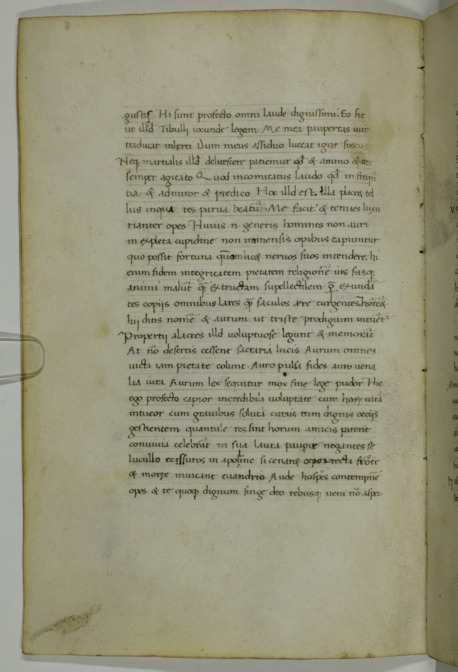 gustis Hi sunt profecto omni laude dignissimi. Eo fit
ut illd Tibulli iocunde legam Me mea paupertas vite
traducat inherti Dum meus assiduo luceat igne focus
Neq martialis illd delitescere patiemur qd & animo & ore
semper agitato Quod incomitatus laudo qd
tia & admiror & predico Hoc illd est. Illa placet tel
lus in qua res parva beatu Me facit & tenues luxu
riantur opes Huius n generis homines non auri
inexpleta cupidine non inmensis opibus capiuntur
quo possit fortuna nervos suos intendere. hi
enim fidem integritatem pietatem religione
animi malut q extructam supellectilem q exunda
tes copiis omnibus lares q saculos ere turgentes horreaq
hii ditis nomen & aurum ut triste prodigium intuet
Propertii alacres illd voluptuose legunt & memorat
At no desertis cessent sacraria lucis Aurum omnes
victa iam pietate colunt Auro pulsa fides auro vena
lia iura Aurum lex sequitur mox sine lege pudor Hic
ego profecto capior incredibili voluptate cum hor vita
intueor cum gravibus soluta curis tum dignis
gestientem quantule res sint horum amicis patent
convivia celebrat in sua lauta paupie negantes se
lucullo cessuros in apoline si cenat recta
& more invitant evandrio Aude hospes contemnere
opes & te quoq dignum finge deo rebusq veni no asper